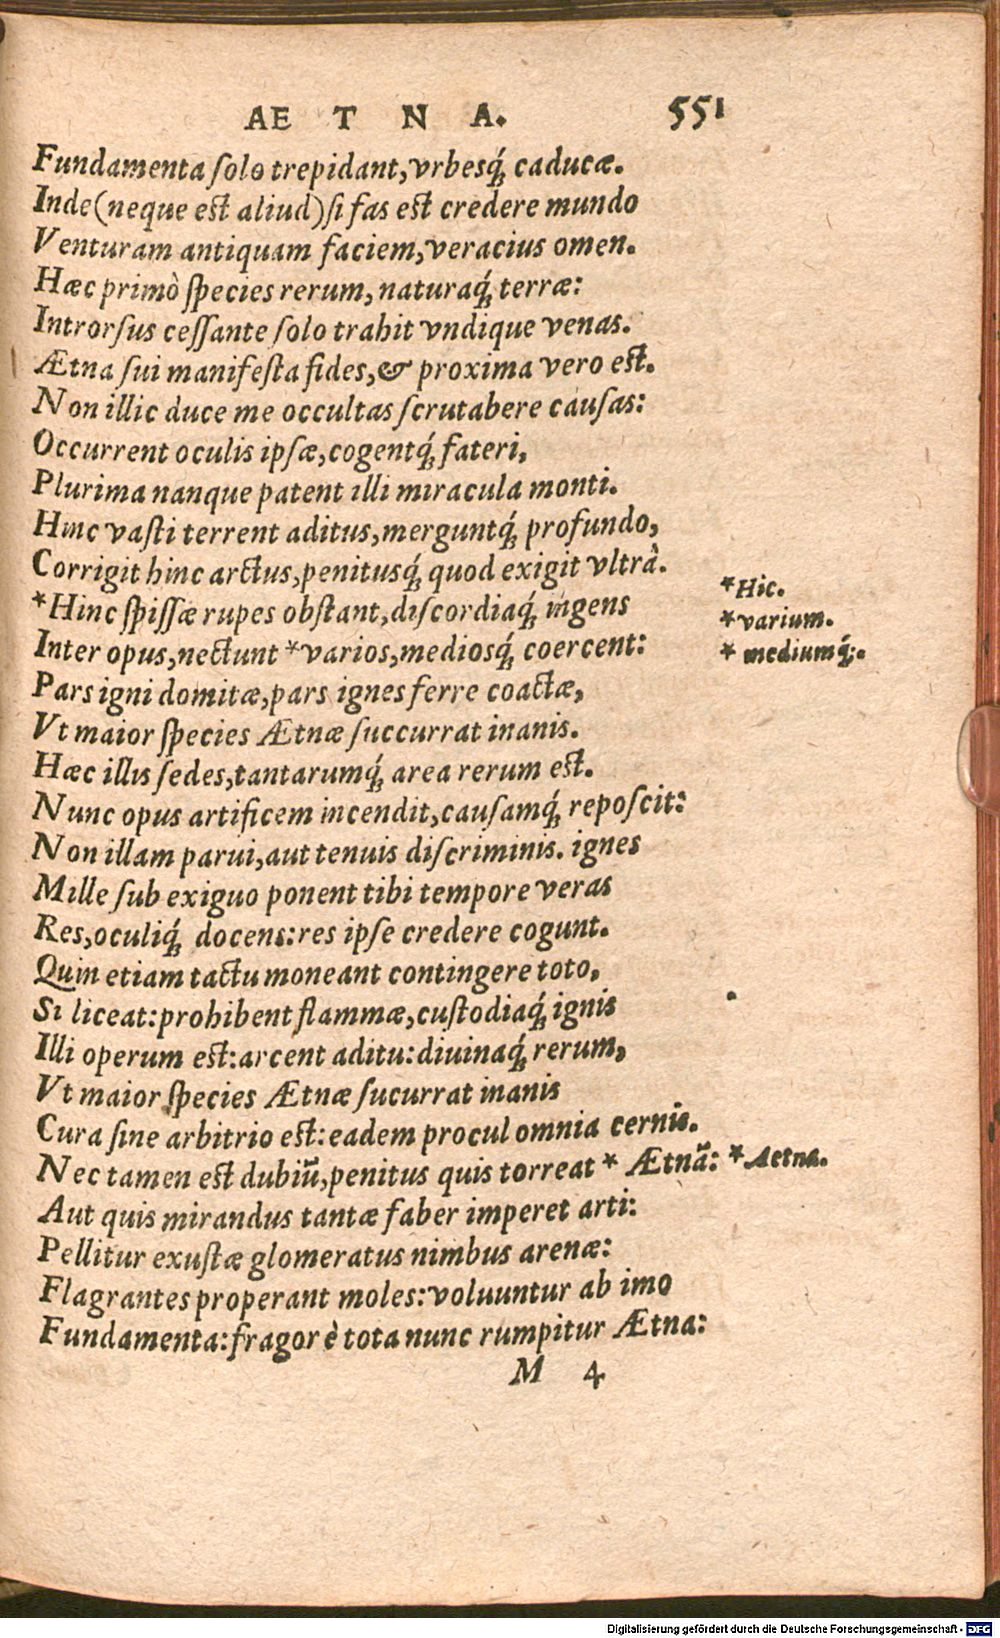 AETNA. 551
Fundamenta ſolo trepidant, vrbesq́; caducæ.
Inde (neque est aliud) ſi fas est credere mundo
Venturam antiquam faciem, veracius omen.
Hæc primò ſpecies rerum, naturaq́; terræ:
Introrſus ceſſante ſolo trahit vndique venas.
Ætna ſui manifeſta fides, & proxima vero est.
Non illic duce me occultas ſcrutabere cauſas:
Occurrent oculis ipſæ, cogentq́; fateri,
Plurima nanque patent illi miracula monti.
Hinc vaſti terrent aditus, merguntq́; profundo,
Corrigit hinc arctus, penitusq́; quod exigit vltrà.
*Hinc ſpiſſæ rupes obſtant, diſcordiaq́; ingens *Hic.
Inter opus, nectunt *varios, mediosq́; coercent: *varium.
* mediumq́;.
Pars igni domitæ, pars ignes ferre coactæ,
Vt maior ſpecies Ætnæ ſuccurrat inanis.
Hæc illis ſedes, tantarumq́; area rerum est.
Nunc opus artificem incendit, cauſamq́; repoſcit:
Non illam parui, aut tenuis diſcriminis. ignes
Mille ſub exiguo ponent tibi tempore veras
Res, oculiq́; docens: res ipſe credere cogunt.
Quin etiam tactu moneant contingere toto,
Si liceat: prohibent flammæ, cuſtodiaq́; ignis
Illi operum est: arcent aditu: diuinaq́; rerum,
Vt maior ſpecies Ætnæ ſucurrat inanis
Cura ſine arbitrio est: eadem procul omnia cernis.
Nec tamen est dubiũ, penitus quis torreat * Ætnã: *Aetna.
Aut quis mirandus tantæ faber imperet arti:
Pellitur exuſtæ glomeratus nimbus arenæ:
Flagrantes properant moles: voluuntur ab imo
Fundamenta: fragor è tota nunc rumpitur Ætna:
M 4
Digitalisierung gefördert durch die Deutsche Forschungsgemeinschaft - DFG